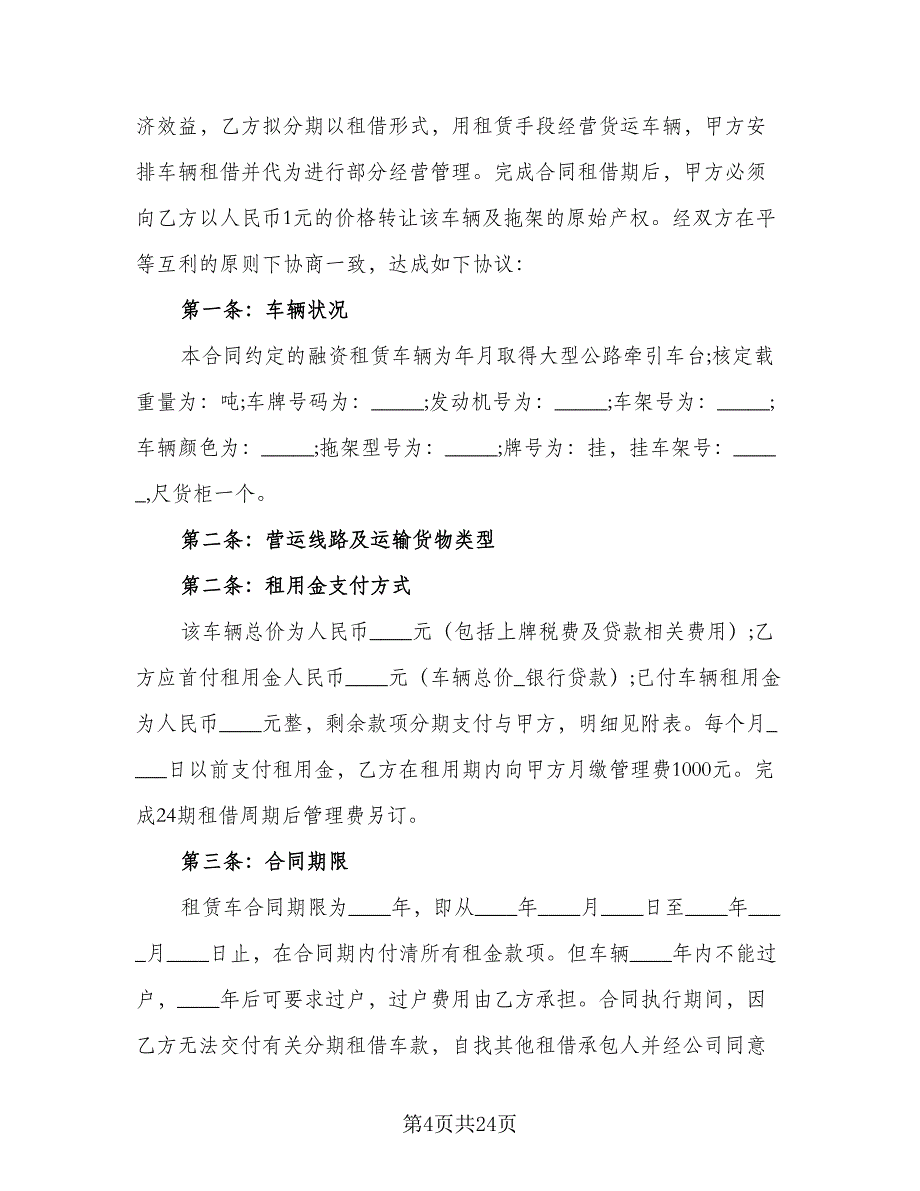 济效益，乙方拟分期以租借形式，用租赁手段经营货运车辆，甲方安
排车辆租借并代为进行部分经营管理。完成合同租借期后，甲方必须
向乙方以人民币1元的价格转让该车辆及拖架的原始产权。经双方在平
等互利的原则下协商一致，达成如下协议：
第一条：车辆状况
本合同约定的融资租赁车辆为年月取得大型公路牵引车台;核定载
重量为：吨;车牌号码为：_____;发动机号为：_____;车架号为：_____;
车辆颜色为：_____;拖架型号为：_____;牌号为：挂，挂车架号：____
_,尺货柜一个。
第二条：营运线路及运输货物类型
第二条：租用金支付方式
该车辆总价为人民币____元（包括上牌税费及贷款相关费用）;乙
方应首付租用金人民币____元（车辆总价_银行贷款）;已付车辆租用金
为人民币____元整，剩余款项分期支付与甲方，明细见附表。每个月_
___日以前支付租用金，乙方在租用期内向甲方月缴管理费1000元。完
成24期租借周期后管理费另订。
第三条：合同期限
租赁车合同期限为____年，即从____年____月____日至____年___
_月____日止，在合同期内付清所有租金款项。但车辆____年内不能过
户，____年后可要求过户，过户费用由乙方承担。合同执行期间，因
乙方无法交付有关分期租借车款，自找其他租借承包人并经公司同意
第4页共24页